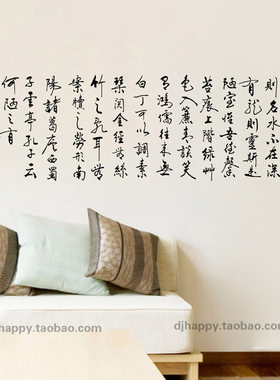 則名水不在深
有龍則靈斯是
陋室惟吾德馨
苔痕上階綠草
色入簾青談笑
有鴻儒往來無
白丁可以調素
琴閱金經無絲
竹之亂耳無
案牘之勞形南
陽諸葛廬西蜀
子雲亭孔子云
何陋之有
djhappy.taobao.com
djhappy.taobao.com